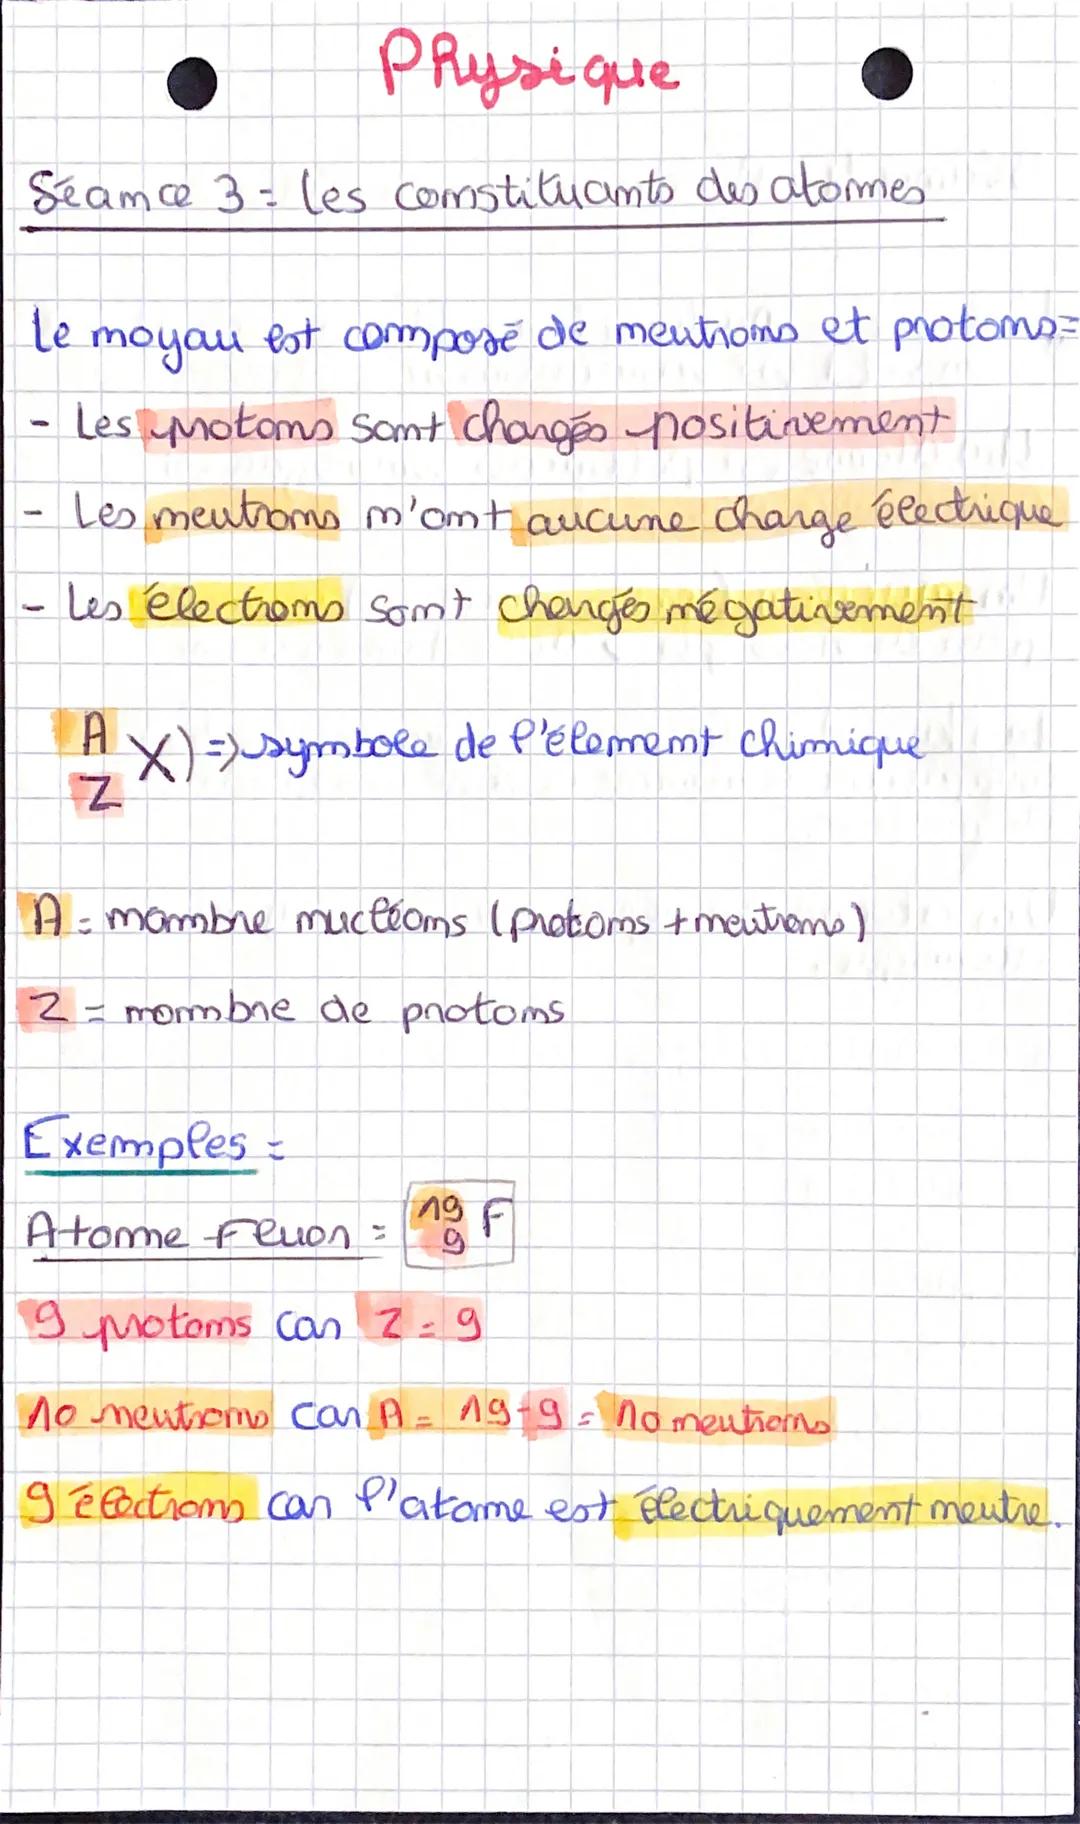 Physique
Séance 3 = les constituants des atomes
Le noyau est composé de neutrons et protons =
- Les protons sont chargés positivement
- Les neutrons n'ont aucune charge électrique
- Les électrons sont chargés négativement
A
Z X) => symbole de l'élément chimique
A = nombre nucléons (protons + neutrons)
Z = nombre de protons
Exemples =
Atome Fluor = 19 9 F
9 protons car Z = 9
10 neutrons car A = 19-9 = 10 neutrons
9 électrons car l'atome est électriquement neutre.